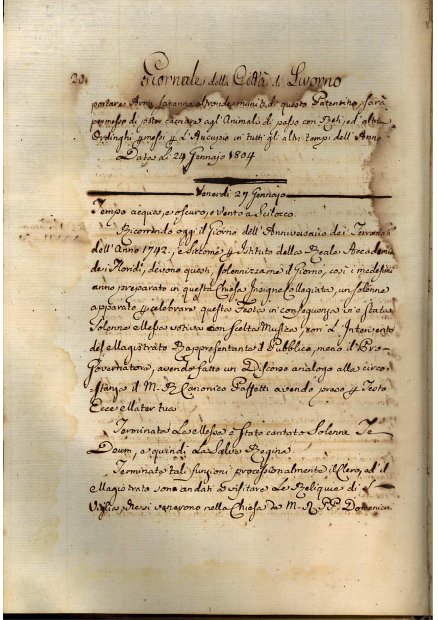 20 Giornale della Città di Livorno
portare Armi saranno altronde muniti di questo Patentino, sarà
permesso di poter cacciare agl'Animali di passo con Reti, ed altri
Ordinghi ammessi per l'Aucupio in tutti gl'altri tempi dell'Anno
Data Li 24 Gennajo 1804
Venerdì 27 Gennajo
Tempo acquoso, e oscuro, e Vento a Scilocco.
Ricorrendo oggi il Giorno dell'Anniversario dei Terremoti
dell'Anno 1742, e siccome per Istituto della Reale Accademia
dei Floridi, devono questi, solennizzarne il Giorno, così i medesimi
anno preparato in questa Chiesa Insigne Collegiata, un solenne
apparato per celebrare questa Festa in conseguenza in è stata
Solenne Messa votiva con scelta Musica, con l'Intervento
del Magistrato Rappresentante il Pubblico, meno il Pro-
Governatore, avendo fatto un Discorso analogo alla circo-
stanza il M. R. Canonico Paffetti avendo preso per Testo
Ecce Mater tua
Terminata La Messa è stato cantato Solenne Te
Deum, e quindi La Salve Regina.
Terminate tali funzioni processionalmente il Clero, ed il
Magistrato sono andati a visitare Le Reliquie di S.
che si venerono nella Chiesa de M. R. PP. Domenicani